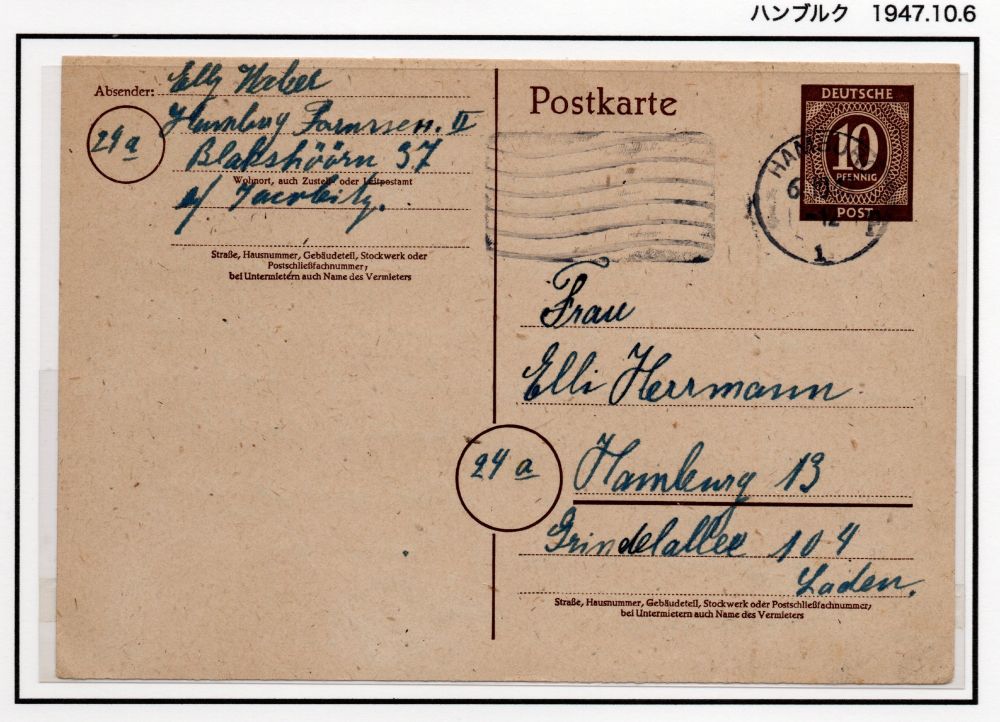 ハンブルク 1947.10.6
Absender: Elly Weber
24a
Hamburg II
37
Wohnort, auch Zustell- oder Leitpostamt
Straße, Hausnummer, Gebäudeteil, Stockwerk oder
Postschließfachnummer;
bei Untermietern auch Name des Vermieters
Postkarte
DEUTSCHE
10
PFENNIG
POST
HAMBURG
1
Frau
Elli Herrmann
24a
Hamburg 13
Grindelallee 104
Laden.
Straße, Hausnummer, Gebäudeteil, Stockwerk oder Postschließfachnummer;
bei Untermietern auch Name des Vermieters